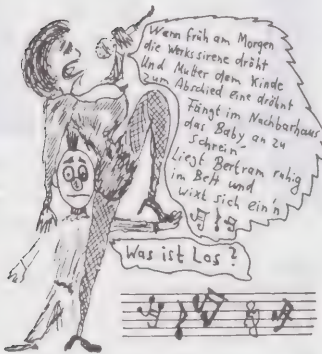 Wenn früh am Morgen
die Werkssirene dröht
Und Mutter dem Kinde
zum Abschied eine dröhnt
Fängt im Nachbarhaus
das Baby an zu
schrein-
Liegt Bertram ruhig
im Bett und
wixt sich ein'n
Was ist Los?